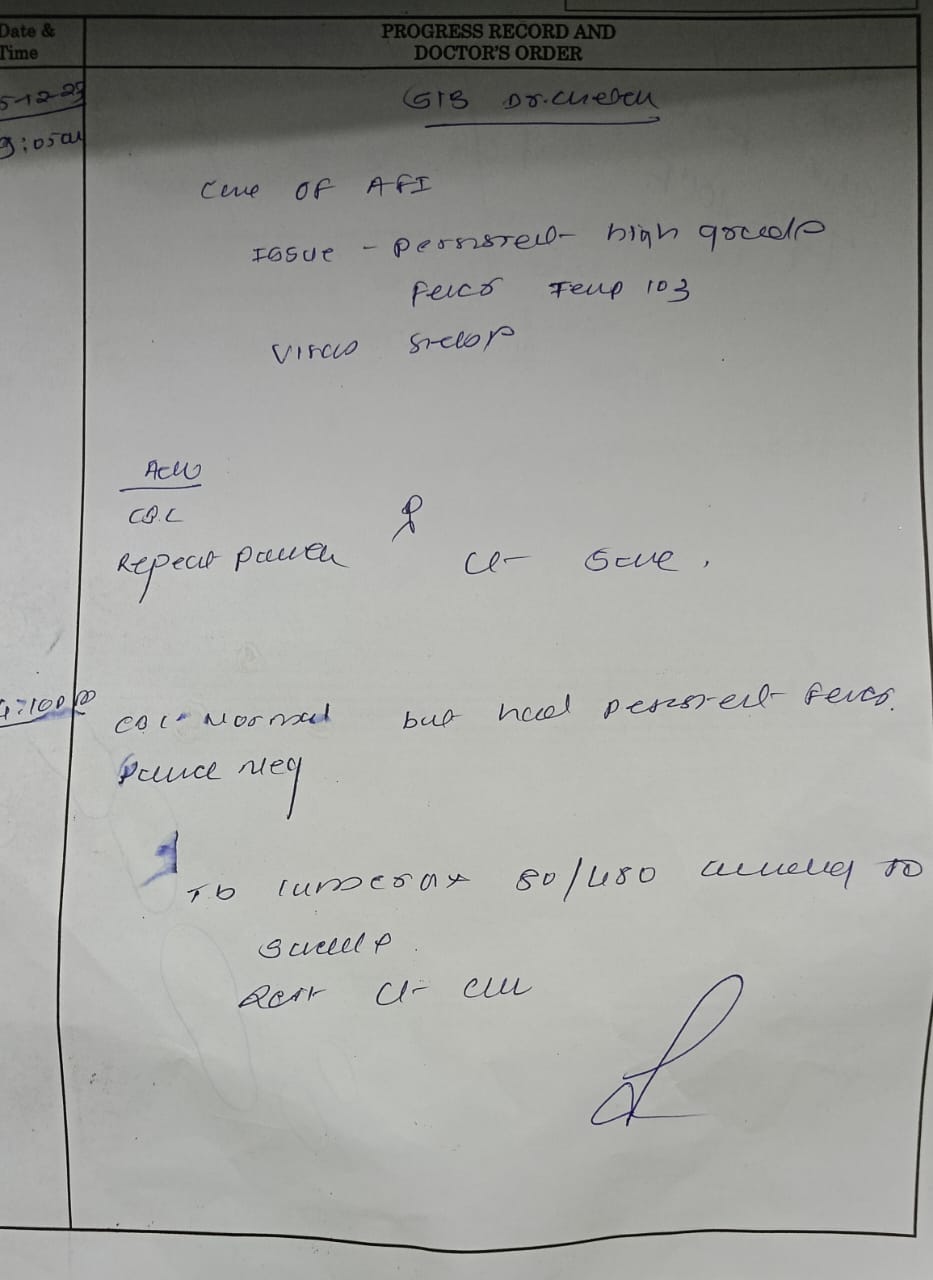 Date & Time
PROGRESS RECORD AND
DOCTOR'S ORDER
5-12-25
9:05am
S/B Dr. Chetan
Case OF AFI
ISSUE - persistent high grade
Fever Temp 103
Vitals stable
Adv
CBC
Repeat
Ct same.
CBC - Normal but had persistent fever.
neg
Tb Lumerax 80/480 to
Rest Ct all